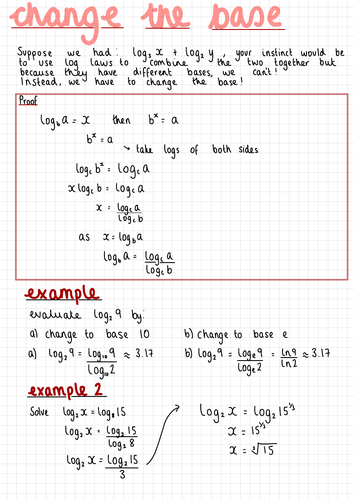 change the base
Suppose we had: log₃ x + log₂ y, your instinct would be
to use log laws to combine the two together but
because they have different bases, we can't!
Instead, we have to change the base!
Proof
log_b a = x then bˣ = a
bˣ = a
take logs of both sides
log_c bˣ = log_c a
x log_c b = log_c a
x = log_c a / log_c b
as x = log_b a
log_b a = log_c a / log_c b
example
evaluate log₂ 9 by:
a) change to base 10 b) change to base e
a) log₂ 9 = log₁₀ 9 / log₁₀ 2 ≈ 3.17 b) log₂ 9 = logₑ 9 / logₑ 2 = ln 9 / ln 2 ≈ 3.17
example 2
Solve log₂ x = log₈ 15
log₂ x = log₂ 15 / log₂ 8
log₂ x = log₂ 15 / 3
log₂ x = log₂ 15^(1/3)
x = 15^(1/3)
x = ∛15